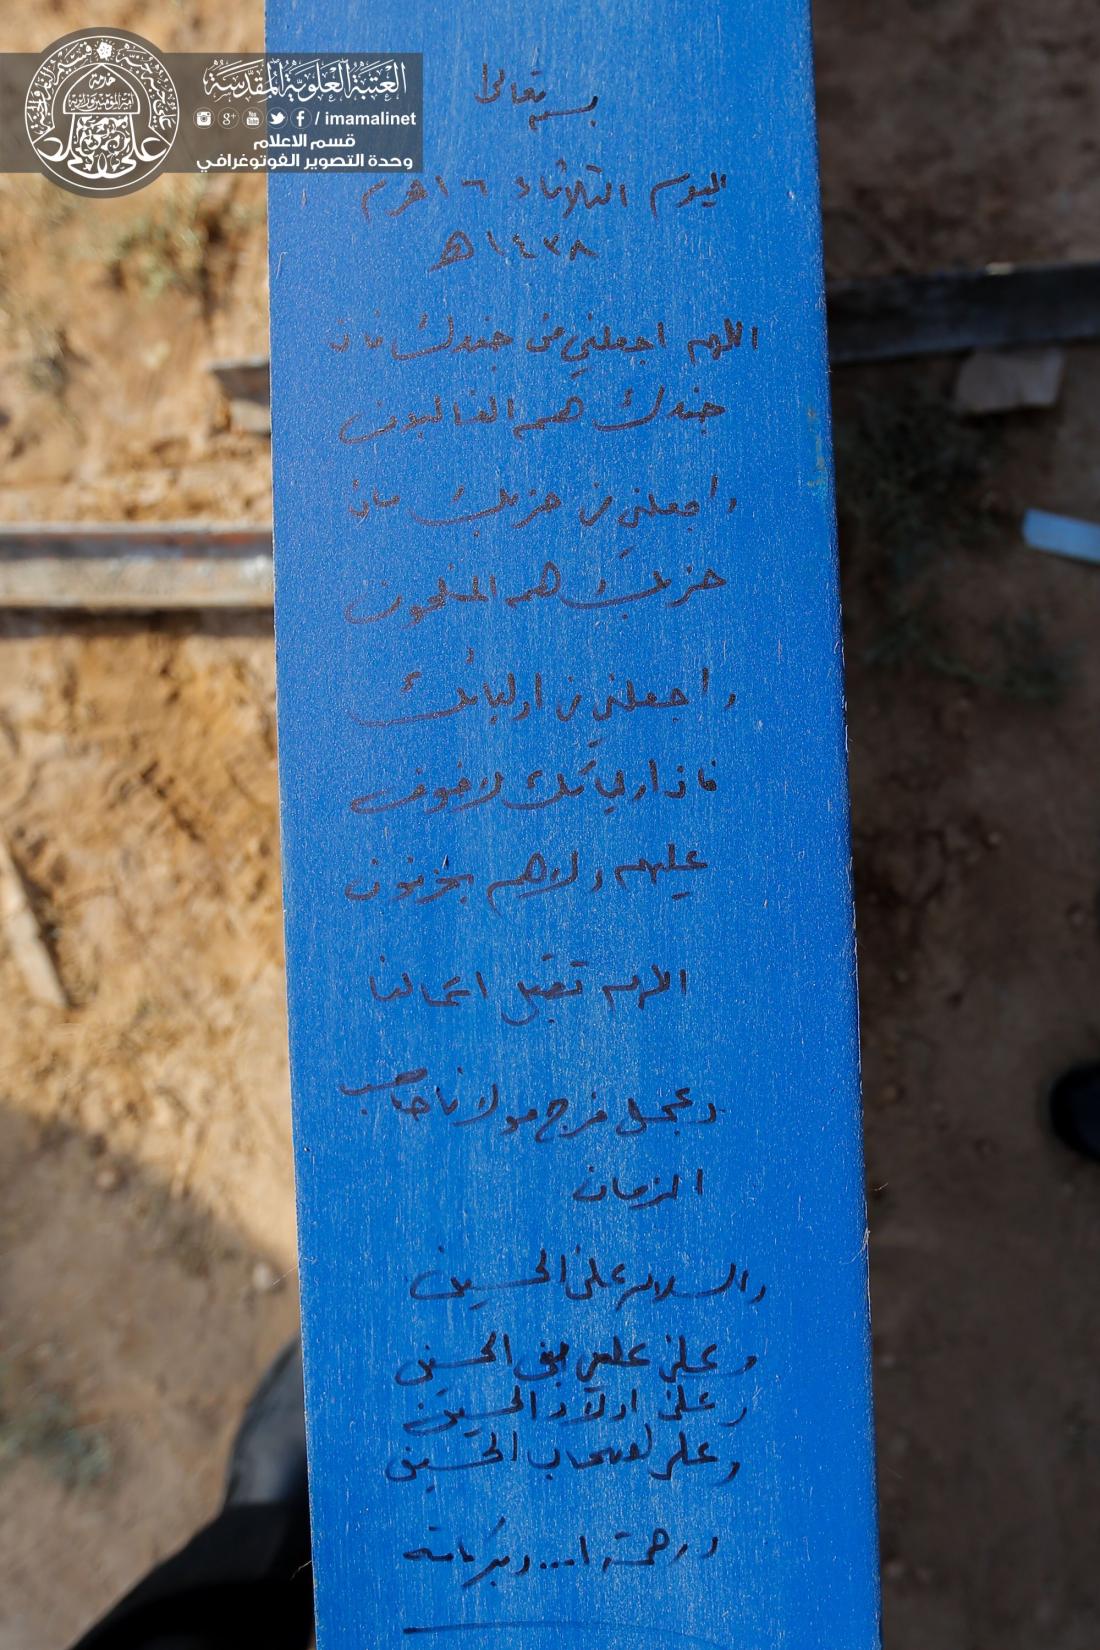 العتبة العلوية المقدسة
/ imamalinet
قسم الاعلام
وحدة التصوير الفوتوغرافي
بسمه تعالى
اليوم الثلاثاء ١٦ محرم
١٤٣٨ هـ
اللهم اجعلني من جندك فان
جندك هم الغالبون
واجعلني من حزبك فان
حزبك هم المفلحون
واجعلني من اوليائك
فان اوليائك لا خوف
عليهم ولا هم يحزنون
اللهم تقبل اعمالنا
وعجل فرج مولانا صاحب
الزمان
والسلام على الحسين
وعلى علي بن الحسين
وعلى اولاد الحسين
وعلى اصحاب الحسين
ورحمة ا... وبركاته